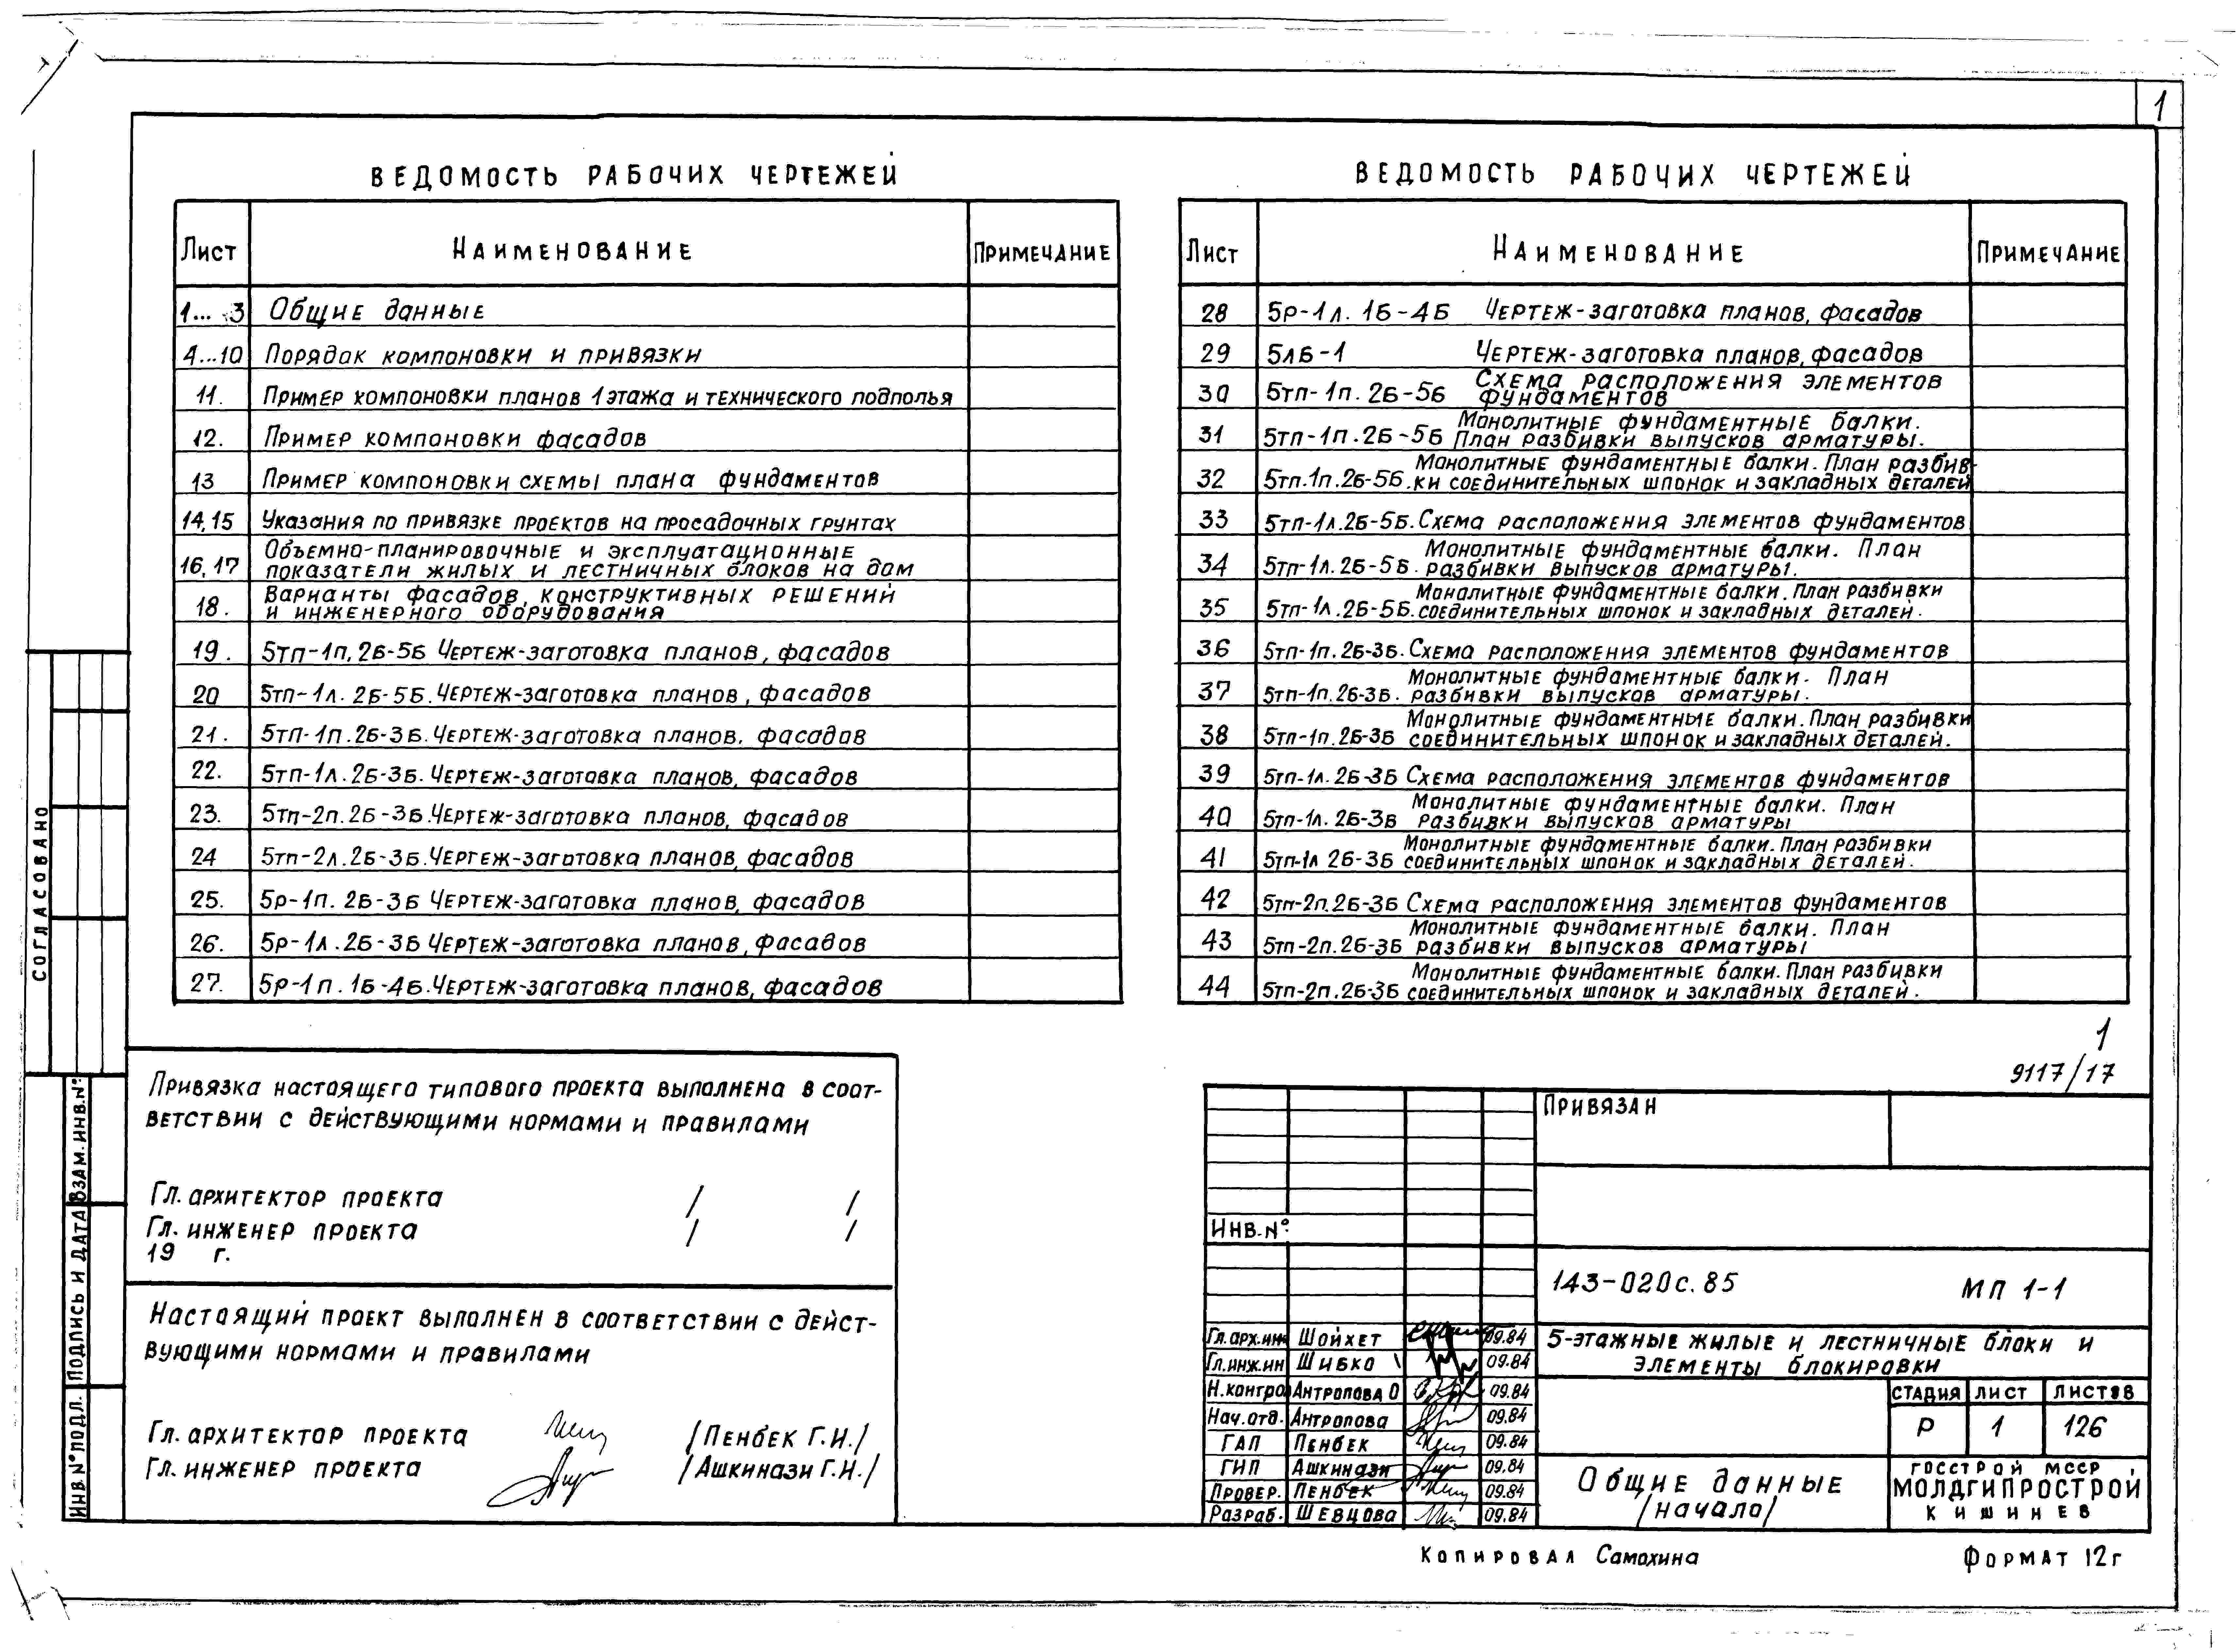 1
ВЕДОМОСТЬ РАБОЧИХ ЧЕРТЕЖЕЙ
Лист НАИМЕНОВАНИЕ ПРИМЕЧАНИЕ
1...3 Общие данные
4...10 Порядок компоновки и привязки
11. Пример компоновки планов 1 этажа и технического подполья
12. Пример компоновки фасадов
13 Пример компоновки схемы плана фундаментов
14,15 Указания по привязке проектов на просадочных грунтах
16,17 Объемно-планировочные и эксплуатационные
показатели жилых и лестничных блоков на дом
18. Варианты фасадов, конструктивных решений
и инженерного оборудования
19. 5тп-1п.2Б-5Б Чертеж-заготовка планов, фасадов
20 5тп-1л.2Б-5Б.Чертеж-заготовка планов, фасадов
21. 5тп-1п.2Б-3Б.Чертеж-заготовка планов. фасадов
22. 5тп-1л.2Б-3Б.Чертеж-заготовка планов, фасадов
23. 5тп-2п.2Б-3Б.Чертеж-заготовка планов, фасадов
24 5тп-2л.2Б-3Б.Чертеж-заготовка планов, фасадов
25. 5р-1п.2Б-3Б Чертеж-заготовка планов, фасадов
26. 5р-1л.2Б-3Б Чертеж-заготовка планов, фасадов
27. 5р-1п.1Б-4Б.Чертеж-заготовка планов, фасадов
ВЕДОМОСТЬ РАБОЧИХ ЧЕРТЕЖЕЙ
Лист НАИМЕНОВАНИЕ ПРИМЕЧАНИЕ
28 5р-1л.1Б-4Б Чертеж-заготовка планов, фасадов
29 5лБ-1 Чертеж-заготовка планов, фасадов
30 5тп-1п.2Б-5Б Схема расположения элементов
фундаментов
31 5тп-1п.2Б-5Б Монолитные фундаментные балки.
План разбивки выпусков арматуры.
32 5тп.1п.2Б-5Б. Монолитные фундаментные балки. План разбив-
ки соединительных шпонок и закладных деталей
33 5тп-1л.2Б-5Б.Схема расположения элементов фундаментов
34 5тп-1л.2Б-5Б. Монолитные фундаментные балки. План
разбивки выпусков арматуры.
35 5тп-1л.2Б-5Б. Монолитные фундаментные балки. План разбивки
соединительных шпонок и закладных деталей.
36 5тп-1п.2Б-3Б.Схема расположения элементов фундаментов
37 5тп-1п.2Б-3Б. Монолитные фундаментные балки. План
разбивки выпусков арматуры.
38 5тп-1п.2Б-3Б Монолитные фундаментные балки. План разбивки
соединительных шпонок и закладных деталей.
39 5тп-1л.2Б-3Б Схема расположения элементов фундаментов
40 5тп-1л.2Б-3Б Монолитные фундаментные балки. План
разбивки выпусков арматуры
41 5тп-1л 2Б-3Б Монолитные фундаментные балки. План разбивки
соединительных шпонок и закладных деталей.
42 5тп-2п.2Б-3Б Схема расположения элементов фундаментов
43 5тп-2п.2Б-3Б Монолитные фундаментные балки. План
разбивки выпусков арматуры
44 5тп-2п.2Б-3Б Монолитные фундаментные балки. План разбивки
соединительных шпонок и закладных деталей.
СОГЛАСОВАНО
ВЗАМ. ИНВ.№
ПОДПИСЬ И ДАТА
ИНВ.№ПОДЛ.
Привязка настоящего типового проекта выполнена в соот-
ветствии с действующими нормами и правилами
Гл. архитектор проекта / /
Гл. инженер проекта / /
19 г.
Настоящий проект выполнен в соответствии с дейст-
вующими нормами и правилами
Гл. архитектор проекта /Пенбек Г.И./
Гл. инженер проекта /Ашкинази Г.И./
1
9117/17
ПРИВЯЗАН
ИНВ.№
143-020с.85 МП 1-1
Гл.арх.ин Шойхет 09.84
Гл.инж.ин Шибко 09.84
Н.контро Антропова О 09.84
Нач.отд. Антропова 09.84
ГАП Пенбек 09.84
ГИП Ашкинази 09.84
Провер. Пенбек 09.84
Разраб. Шевцова 09.84
5-этажные жилые и лестничные блоки и
элементы блокировки
СТАДИЯ ЛИСТ ЛИСТОВ
Р 1 126
Общие данные
/начало/
ГОССТРОЙ МССР
МОЛДГИПРОСТРОЙ
КИШИНЕВ
Копировал Самохина
Формат 12г